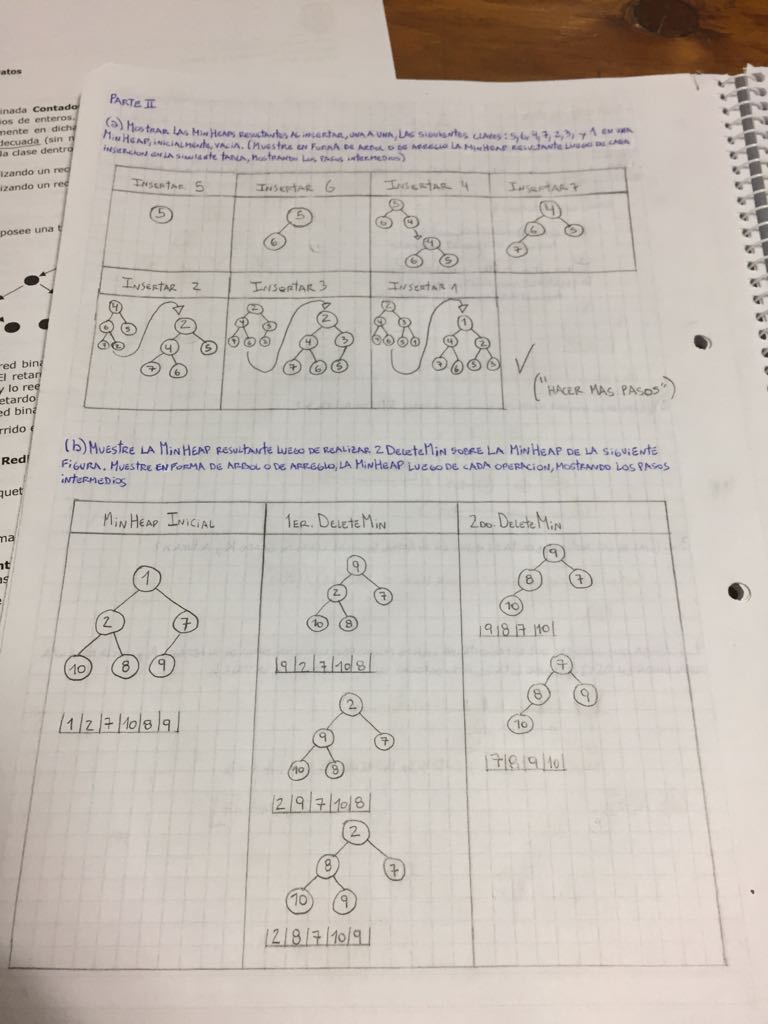 atos
inada Contado
ios de enteros.
mente en dich
decuada (sin n
la clase dentro
izando un rec
izando un rec
posee una t
red bina
El retar
y lo ree
etardo
ed bina
rrido
Red
quet
PARTE II
(a) MOSTRAR LAS MINHEAPS RESULTANTES AL INSERTAR, UNA A UNA, LAS SIGUIENTES CLAVES: 5, 6, 4, 7, 2, 3, Y 1 EN UNA
MINHEAP, INICIALMENTE, VACIA. (MUESTRE EN FORMA DE ARBOL O DE ARREGLO LA MINHEAP RESULTANTE LUEGO DE CADA
INSERCION EN LA SIGUIENTE TABLA, MOSTRANDO LOS PASOS INTERMEDIOS)
INSERTAR 5 INSERTAR 6 INSERTAR 4 INSERTAR 7
5
5
6
5
6 4
4
6 5
4
6 5
7
INSERTAR 2 INSERTAR 3 INSERTAR 1
4
6 5
7 2
2
4 5
7 6
2
4 5
7 6 3
2
4 3
7 6 5
2
4 3
7 6 5 1
1
4 2
7 6 5 3
("HACER MAS PASOS")
(b) MUESTRE LA MINHEAP RESULTANTE LUEGO DE REALIZAR 2 DELETEMIN SOBRE LA MINHEAP DE LA SIGUIENTE
FIGURA. MUESTRE EN FORMA DE ARBOL O DE ARREGLO, LA MINHEAP LUEGO DE CADA OPERACION, MOSTRANDO LOS PASOS
INTERMEDIOS
MINHEAP INICIAL 1ER. DELETEMIN 2DO. DELETEMIN
1
2 7
10 8 9
|1|2|7|10|8|9|
9
2 7
10 8
|9|2|7|10|8|
2
9 7
10 8
|2|9|7|10|8|
2
8 7
10 9
|2|8|7|10|9|
9
8 7
10
|9|8|7|10|
7
8 9
10
|7|8|9|10|